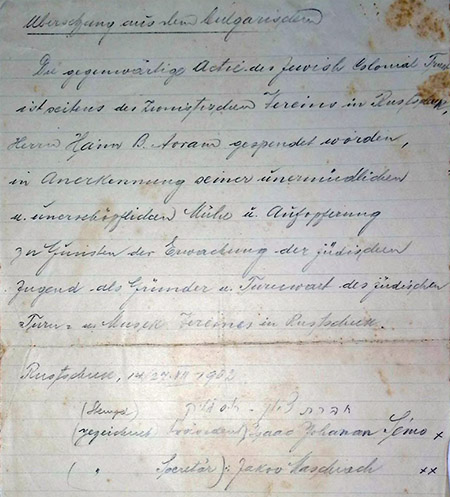 Übersetzung aus dem bulgarischen
Die gegenwärtige Actie des Jewish Colonial Trust
ist seitens des Zionistischen Vereins in Rustschuk,
Herrn Haim B. Avram gespendet worden,
in Anerkennung seiner unermüdlichen
u. unerschöpflichen Mühe u. Aufopferung
zu Gunsten der Erwachung der jüdischen
Jugend als Gründer u. Turnwart des jüdischen
Turn- u. Musik Vereines in Rustschuk.
Rustschuk, 14/27 1902
(Stempel) חברת ציון -
(gezeichnet Präsident) Isaac Johanan Simo x
( " Secretär): Jakov xx